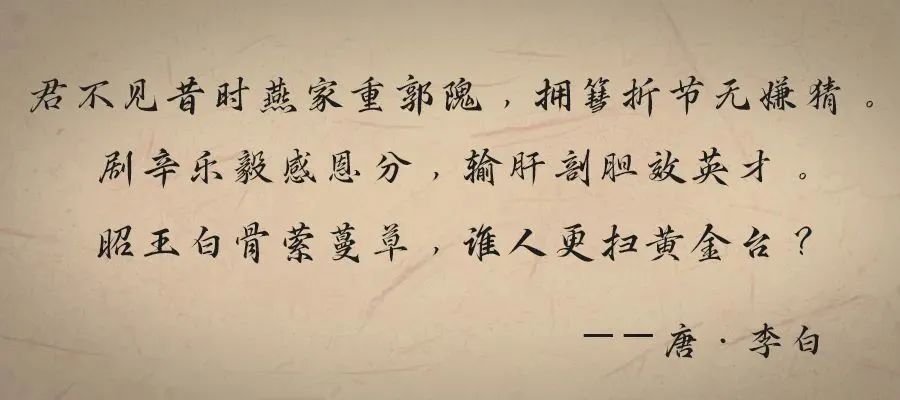 君不见昔时燕家重郭隗，拥篲折节无嫌猜。
剧辛乐毅感恩分，输肝剖胆效英才。
昭王白骨萦蔓草，谁人更扫黄金台？
——唐·李白